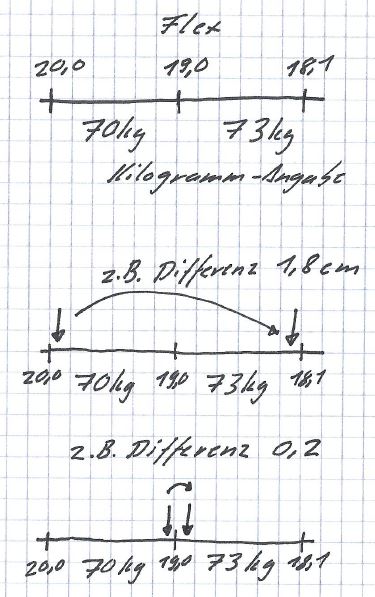 Flex
20,0 19,0 18,1
70kg 73kg
Kilogramm-Angabe
z.B. Differenz 1,8cm
20,0 70kg 19,0 73kg 18,1
z.B. Differenz 0,2
20,0 70kg 19,0 73kg 18,1